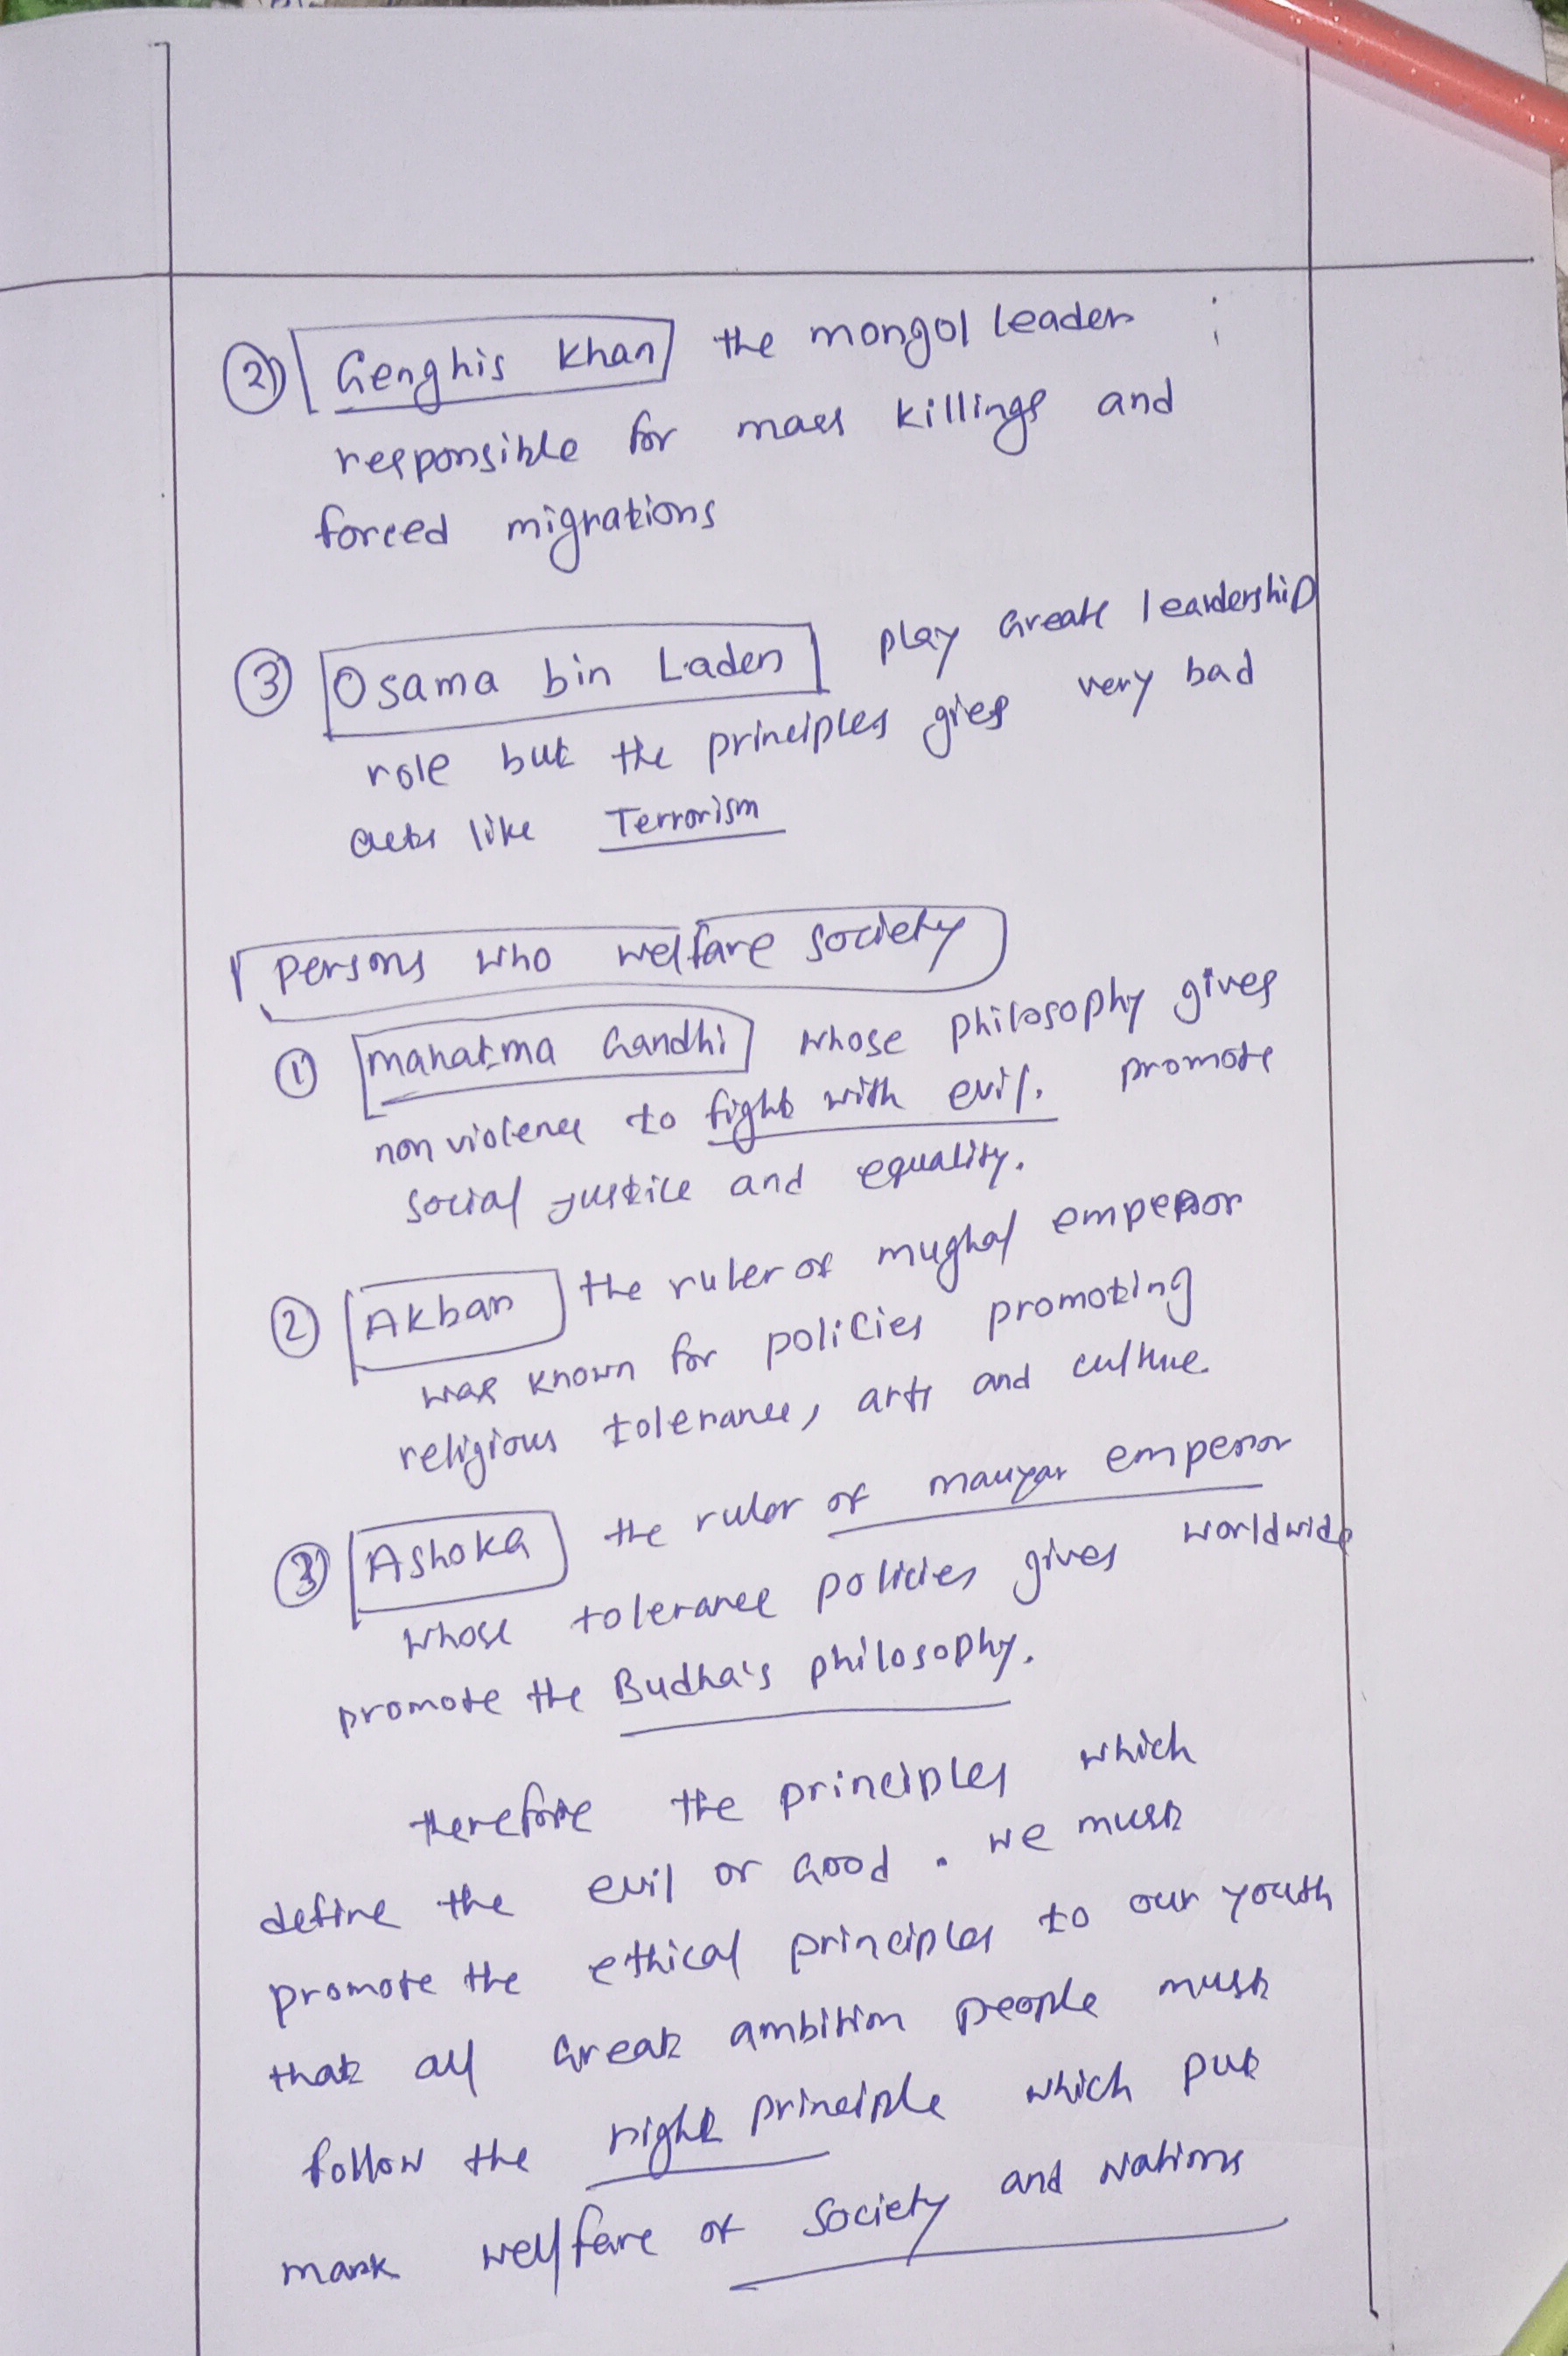 ② Genghis Khan the mongol leader
responsible for mass killings and
forced migrations
③ Osama bin Laden play Great leardership
role but the principles gies very bad
acts like Terrorism
Persons who welfare society
① mahatma Gandhi whose philosophy gives
nonviolence to fight with evil. promote
social justice and equality.
② Akbar the ruler of mughal emperor
was known for policies promoting
religious tolerance, arts and culture.
③ Ashoka the rulor of mauyar emperor
whose tolerance policies gives worldwide
promote the Budha's philosophy.
therefore the principles which
define the evil or Good. we must
promote the ethical principles to our youth
that all Great ambition people must
follow the right principle which put
mark welfare of society and Nations